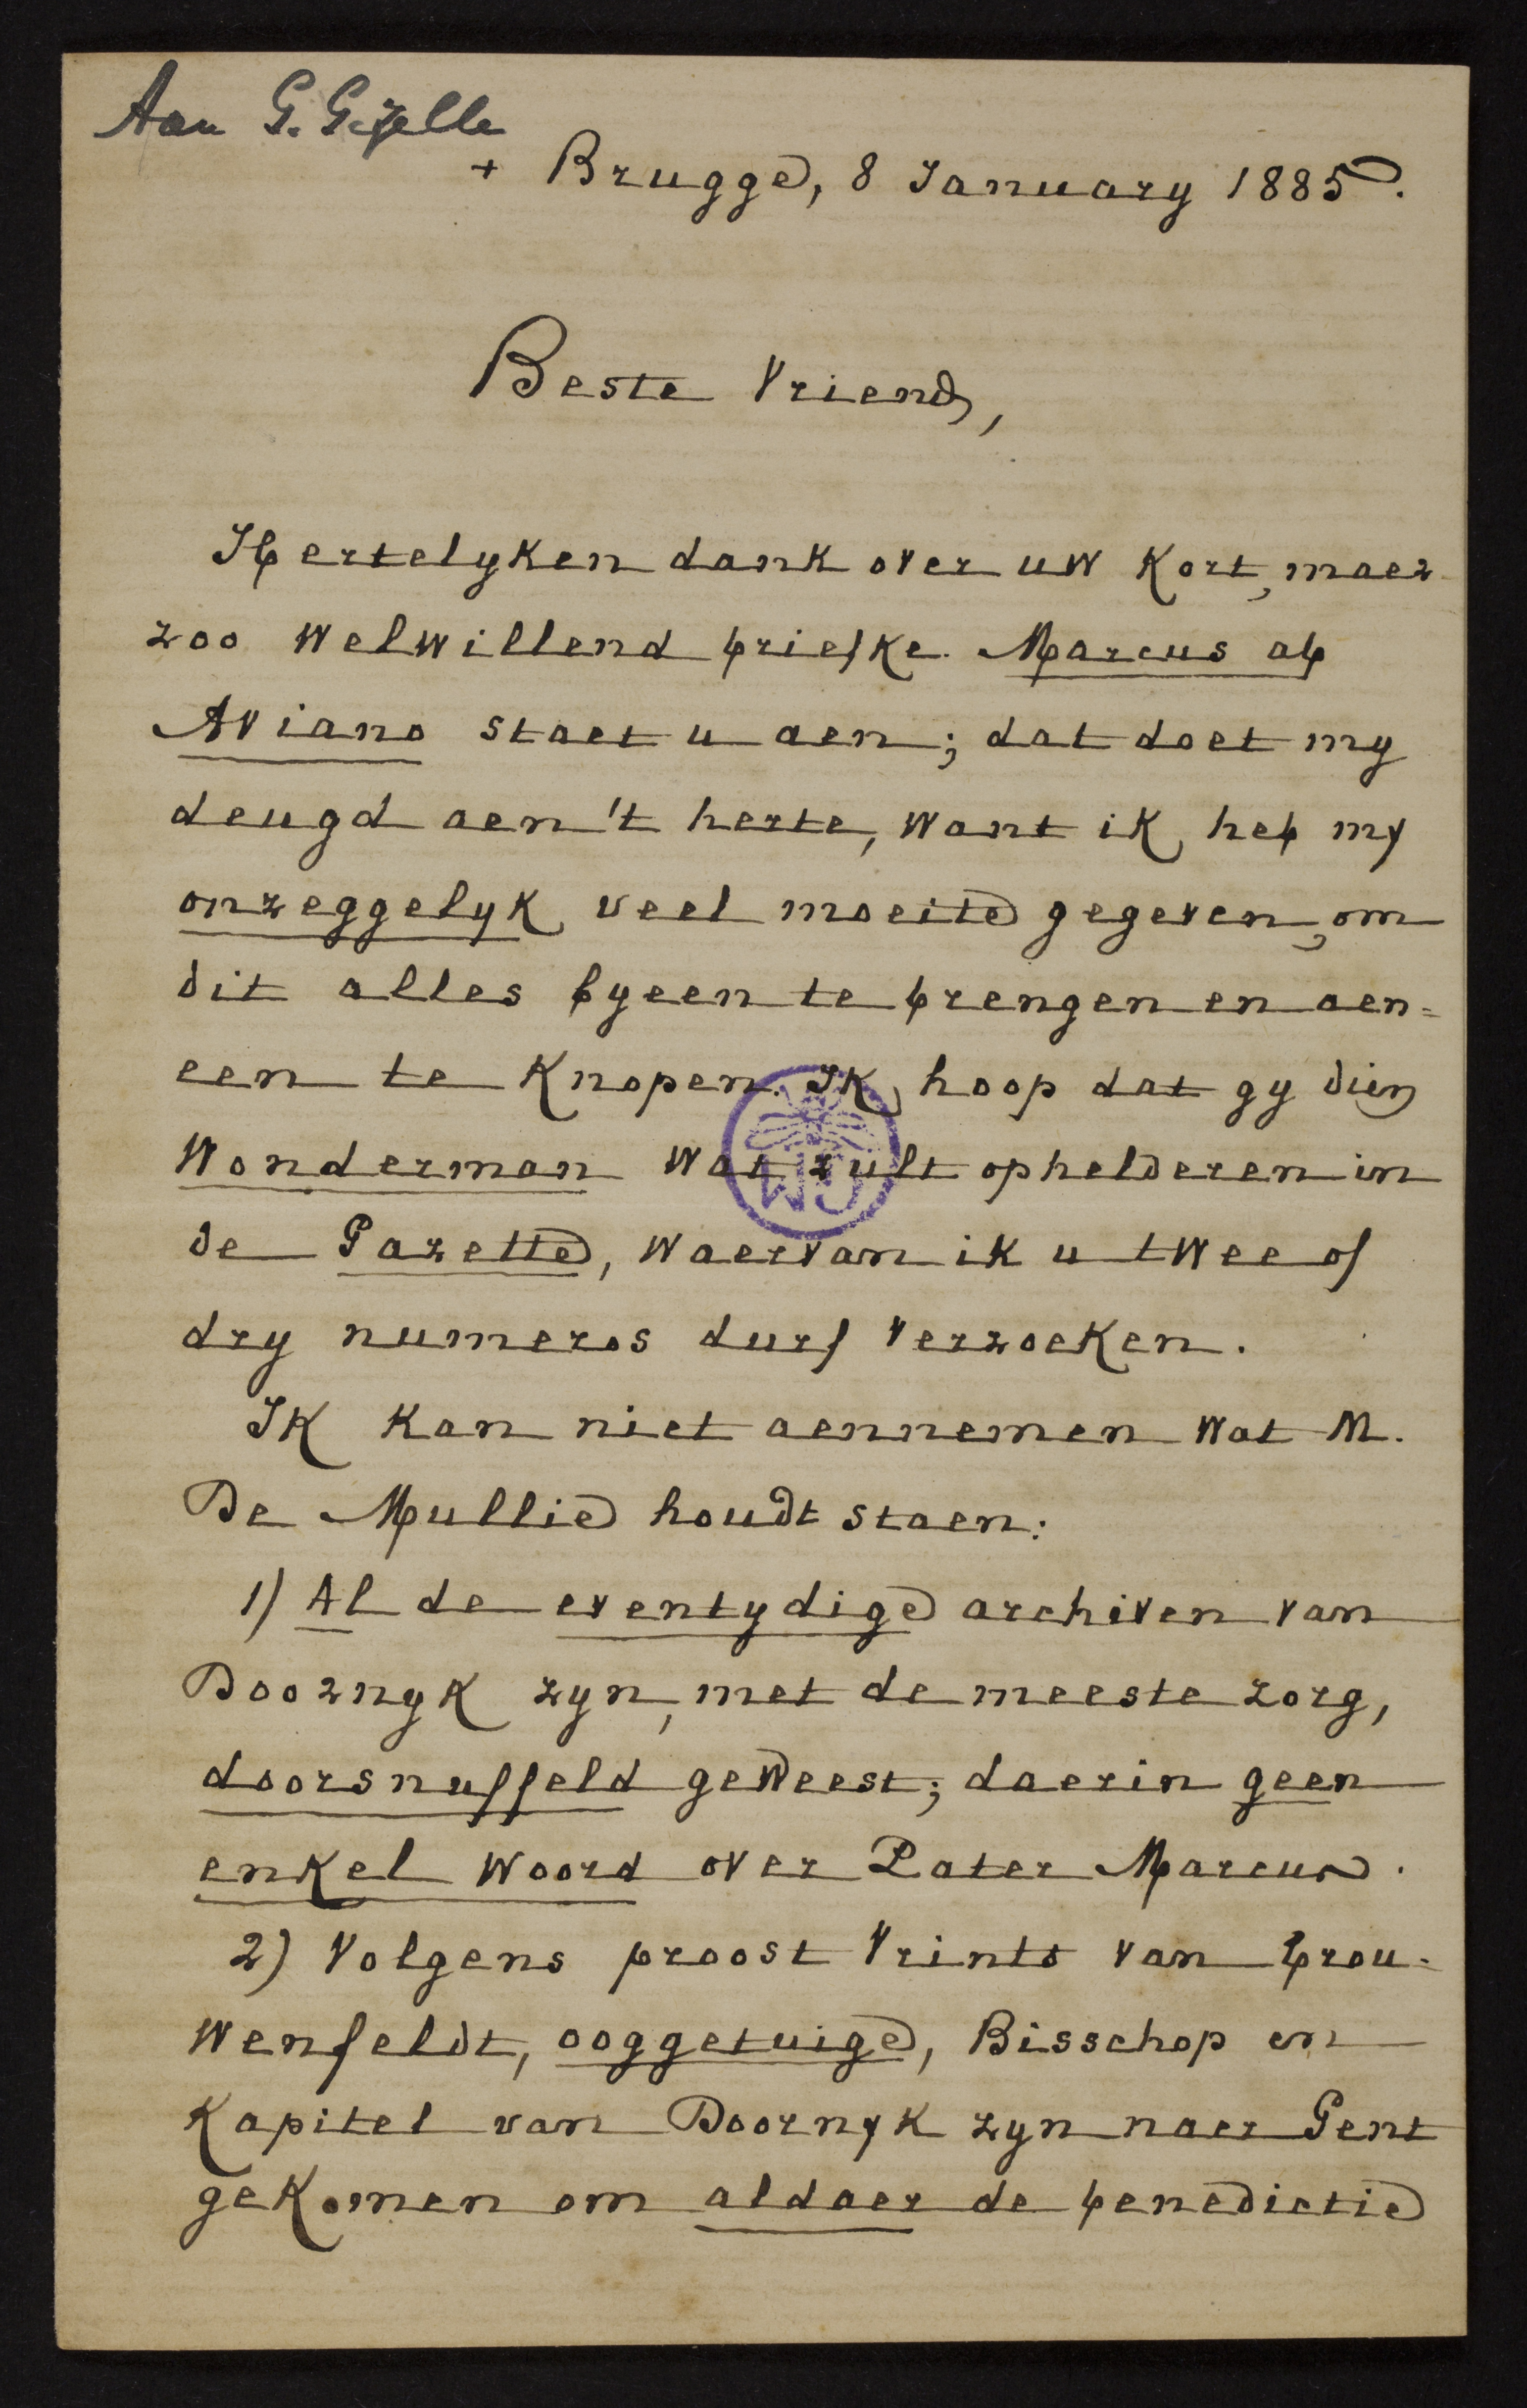 Aan G. Gezelle
+ Brugge, 8 January 1885.
Beste Vriend,
Hertelyken dank over uw kort, maer
zoo welwillend briefke. Marcus ab
Aviano staet u aen; dat doet my
deugd aen 't herte, want ik heb my
onzeggelyk veel moeite gegeven, om
dit alles byeen te brengen en aen=
een te knopen. Ik hoop dat gy dien
Wonderman wat zult ophelderen in
de Gazette, waervan ik u twee of
dry numeros durf verzoeken.
Ik kan niet aennemen wat M.
De Mullie houdt staen:
1) Al de eventydige archiven van
Doornyk zyn, met de meeste zorg,
doorsnuffeld geweest; daerin geen
enkel woord over Pater Marcus.
2) Volgens proost Vrints van Brou-
wenfeldt, ooggetuige, Bisschop en
Kapitel van Doornyk zyn naer Gent
gekomen om aldaer de benedictie